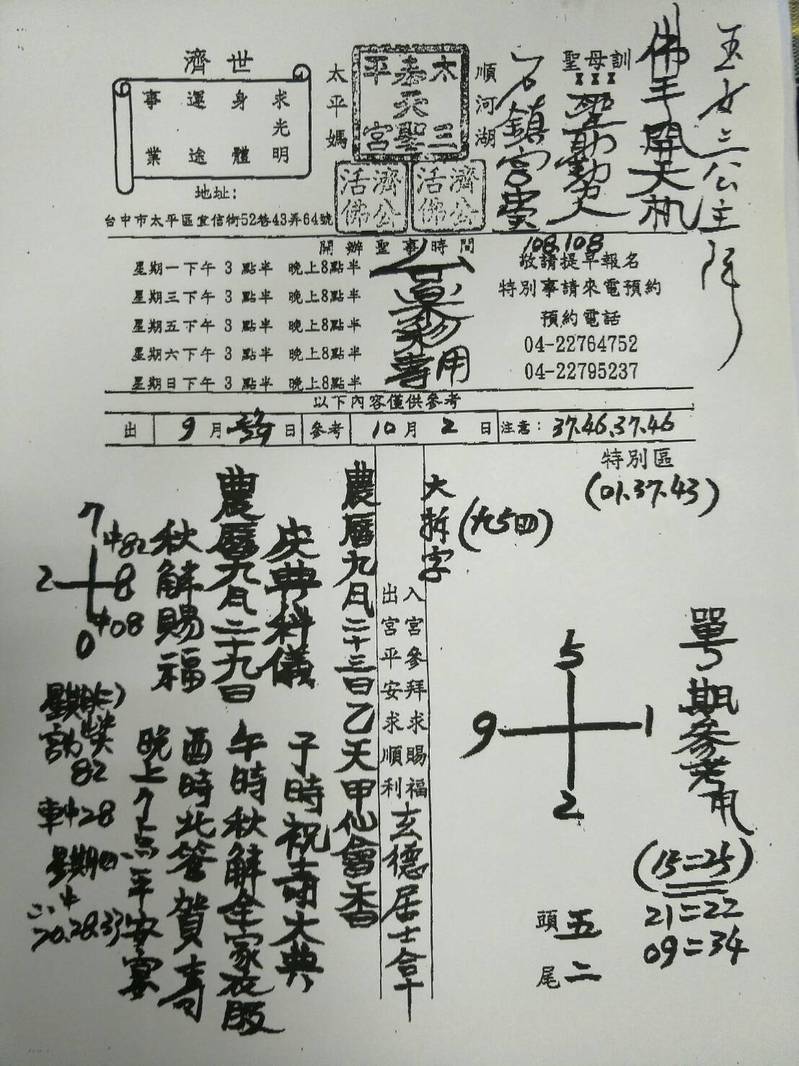 玉女三公主降
佛手開天机
聖母訓
石鎮宮賞
108.108
順河湖
太三
泰天聖
平宮
太平媽
濟公
活佛
濟公
活佛
世濟
求光明
身體
運途
事業
地址:
台中市太平區宜信街52巷43弄64號
開辦聖事時間
星期一下午 3 點半 晚上8點半
星期三下午 3 點半 晚上8點半
星期五下午 3 點半 晚上8點半
星期六下午 3 點半 晚上8點半
星期日下午 3 點半 晚上8點半
專用
敬請提早報名
特別事請來電預約
預約電話
04-22764752
04-22795237
以下內容僅供參考
出 9月 日 參考 10月2日 注意: 37.46.37.46
特別區
(01.37.43)
單號期參考用
5
9 1
2
(15=25)
21=22
09=34
頭五
尾二
大拆字
(九5四)
入宮參拜求賜福
出宮平安求順利
玄德居士拿
農曆九月二十三日乙天甲仙會香
慶典科儀 子時祝壽大典
農曆九月二十九日 午時秋解全家衣服
秋解賜福 酉時 賀壽
晚上 点平安宴
7
2 8
0
中82
中08
82
車中28
星期四
20.28.33